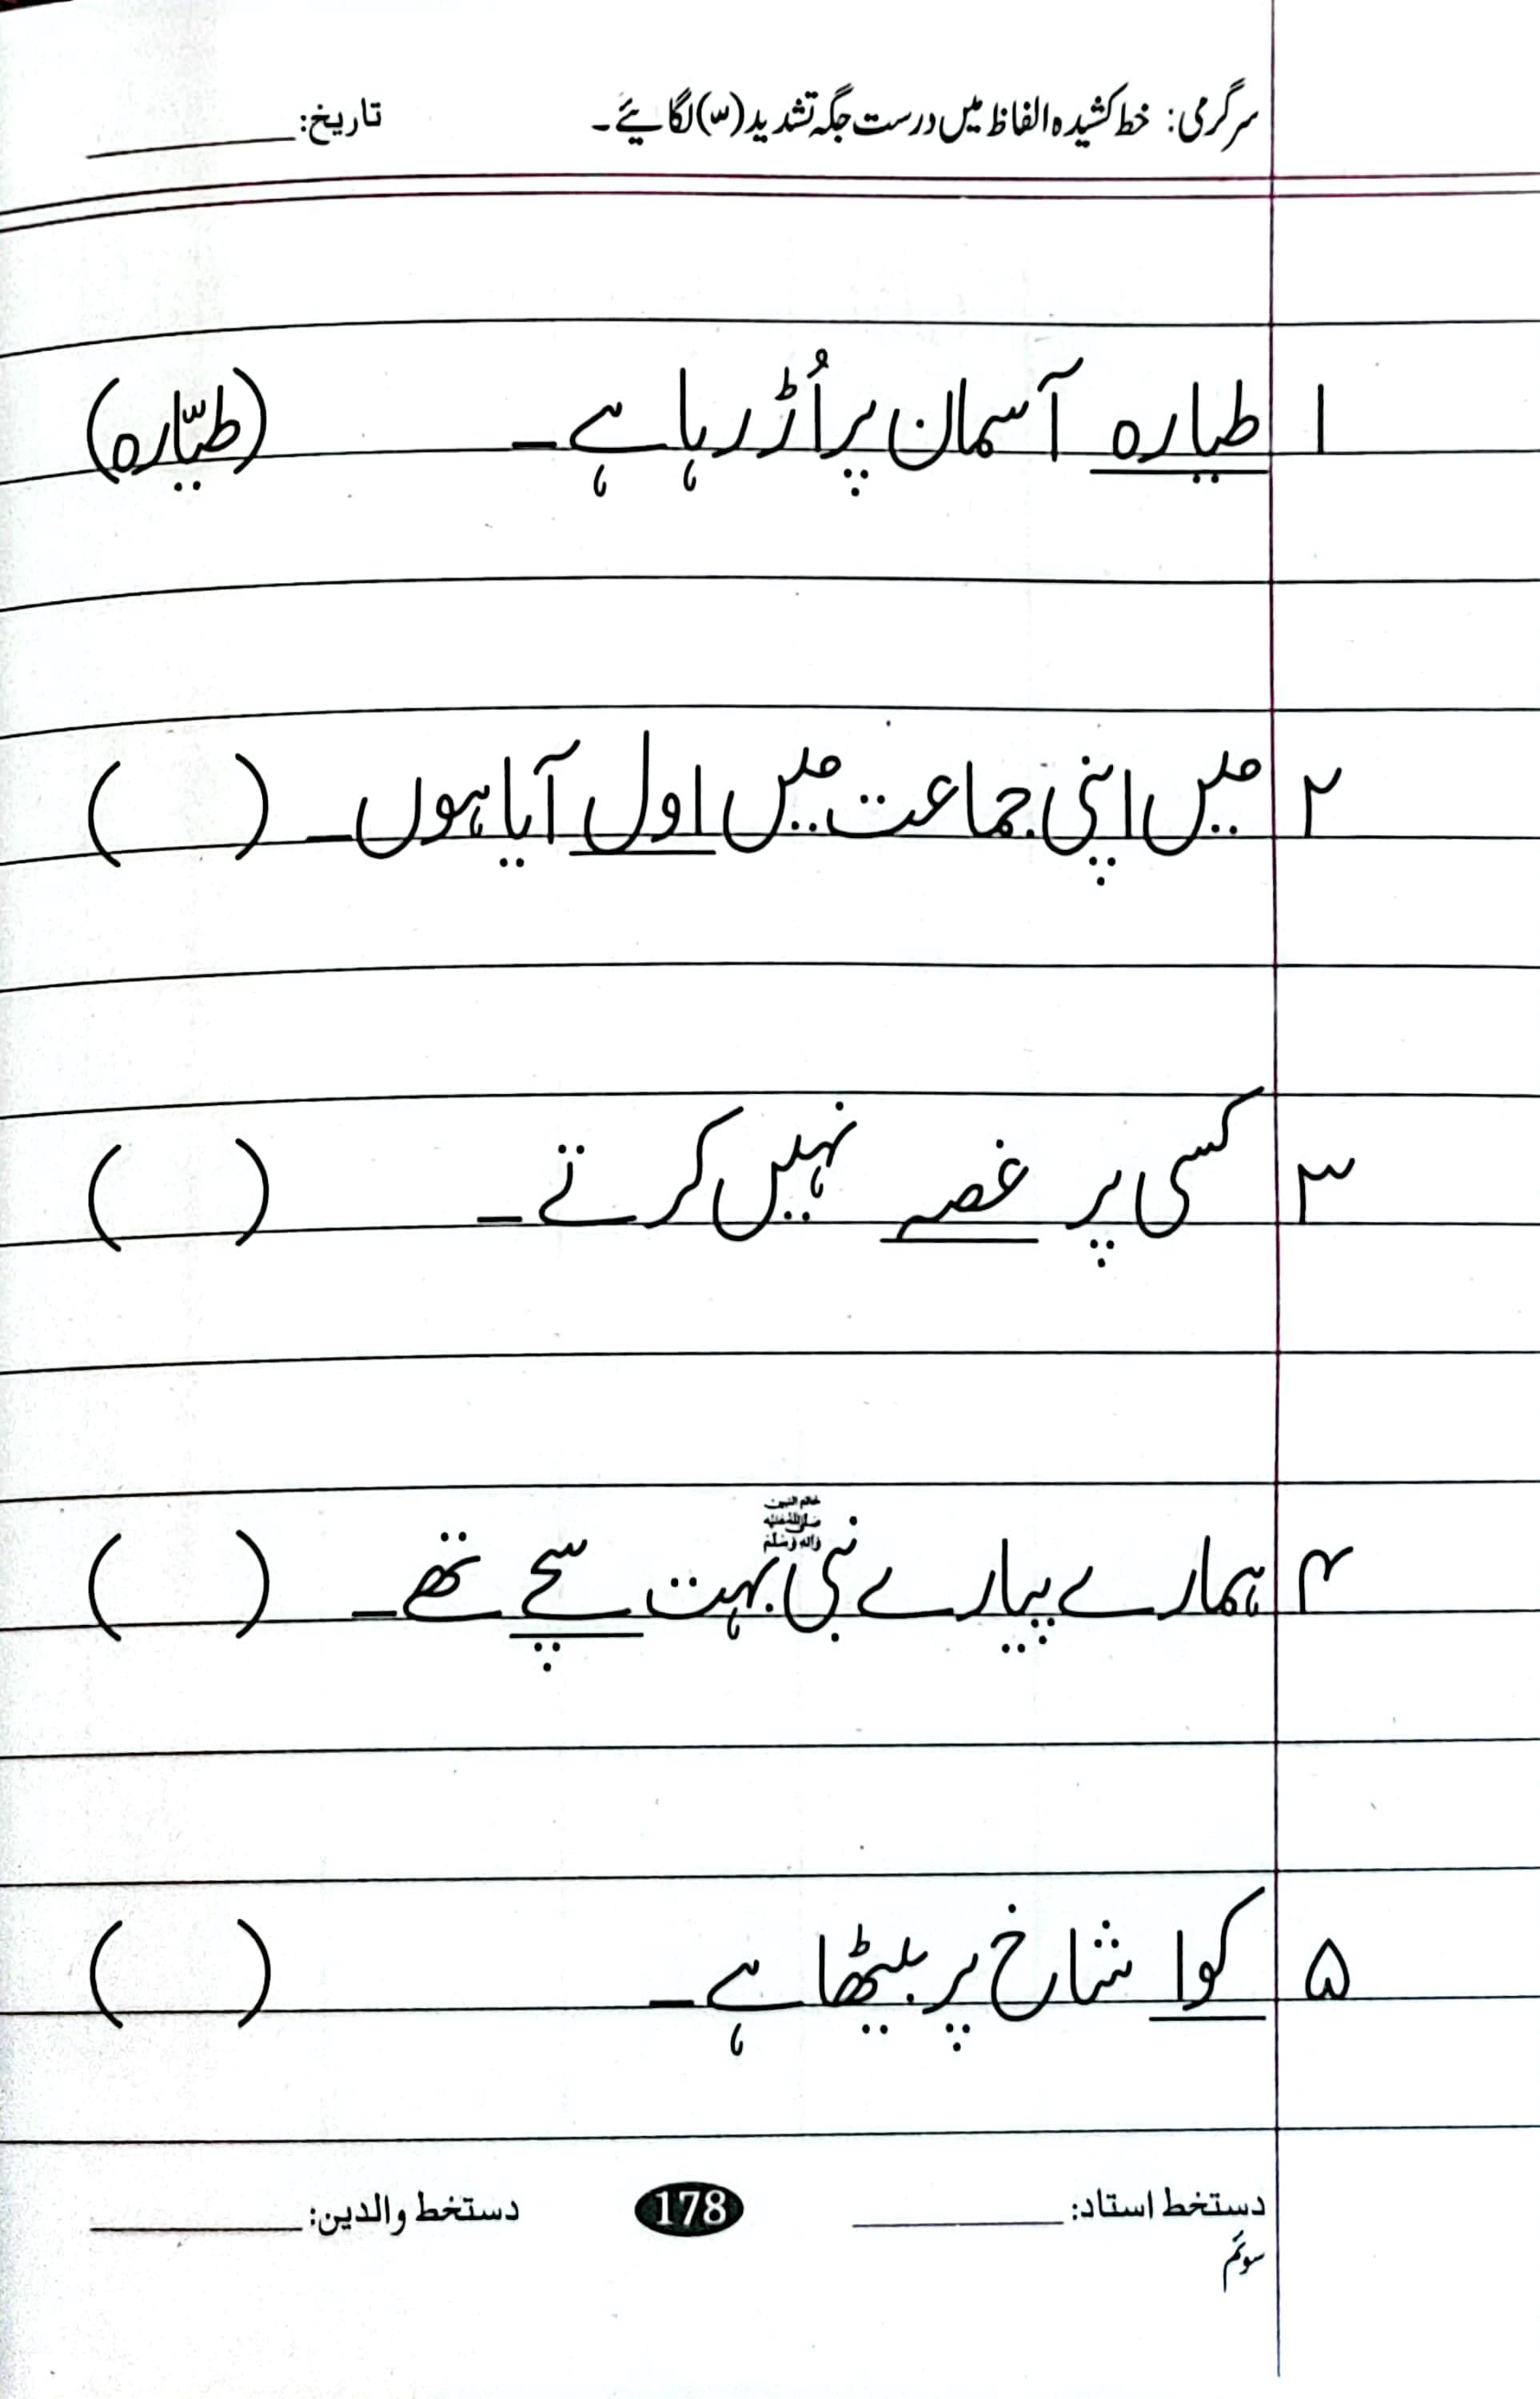 سرگرمی: خط کشیدہ الفاظ میں درست جگہ تشدید (ّ) لگائیے۔ تاریخ:
۱ طیارہ آسمان پر اُڑ رہا ہے۔ (طیّارہ)
۲ میں اپنی جماعت میں اول آیا ہوں۔ ( )
۳ کسی پر غصہ نہیں کرتے۔ ( )
۴ ہمارے پیارے نبی خاتم النبیین صلی اللہ علیہ وآلہ وسلم بہت سچے تھے۔ ( )
۵ کوا شاخ پر بیٹھا ہے۔ ( )
دستخط استاد: 178 دستخط والدین:
سوئم